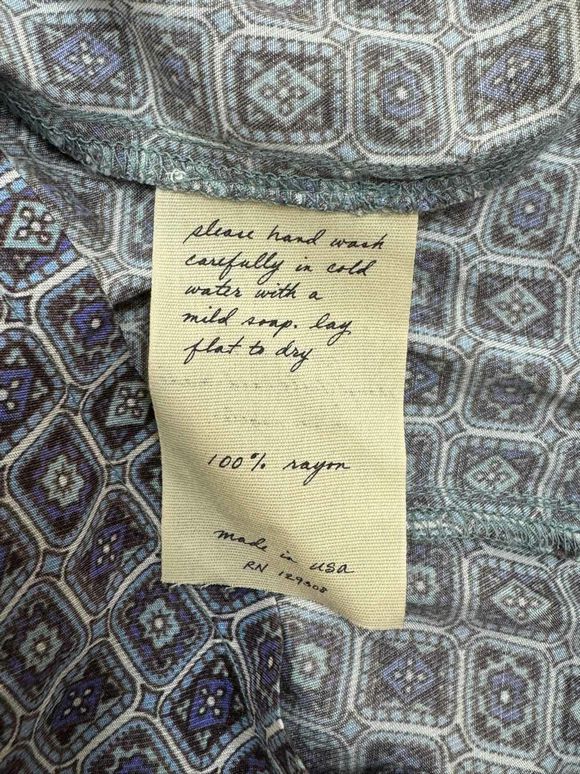 please hand wash
carefully in cold
water with a
mild soap. lay
flat to dry
100% rayon
made in USA
RN 129308